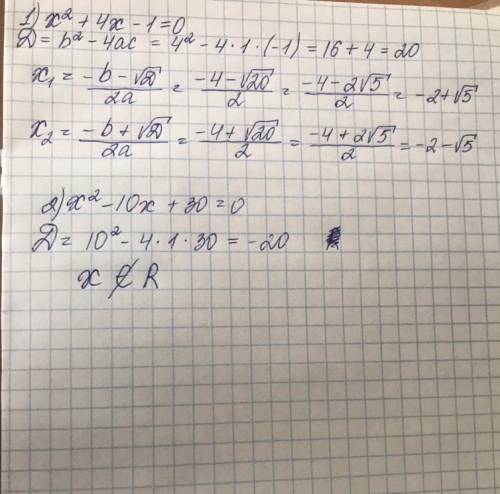 1) x² + 4x - 1 = 0
Д = b² - 4ac = 4² - 4 · 1 · (-1) = 16 + 4 = 20
x₁ = (-b - √20)/2a = (-4 - √20)/2 = (-4 - 2√5)/2 = -2 + √5
x₂ = (-b + √20)/2a = (-4 + √20)/2 = (-4 + 2√5)/2 = -2 - √5
2) x² - 10x + 30 = 0
Д = 10² - 4 · 1 · 30 = -20
x ∉ R